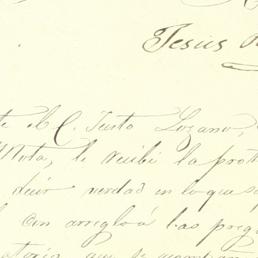 Jesús
te el C. Justo Lozano,
Mota, le recibí la prot
decir verdad en lo que s
con arreglo á las preg
que se